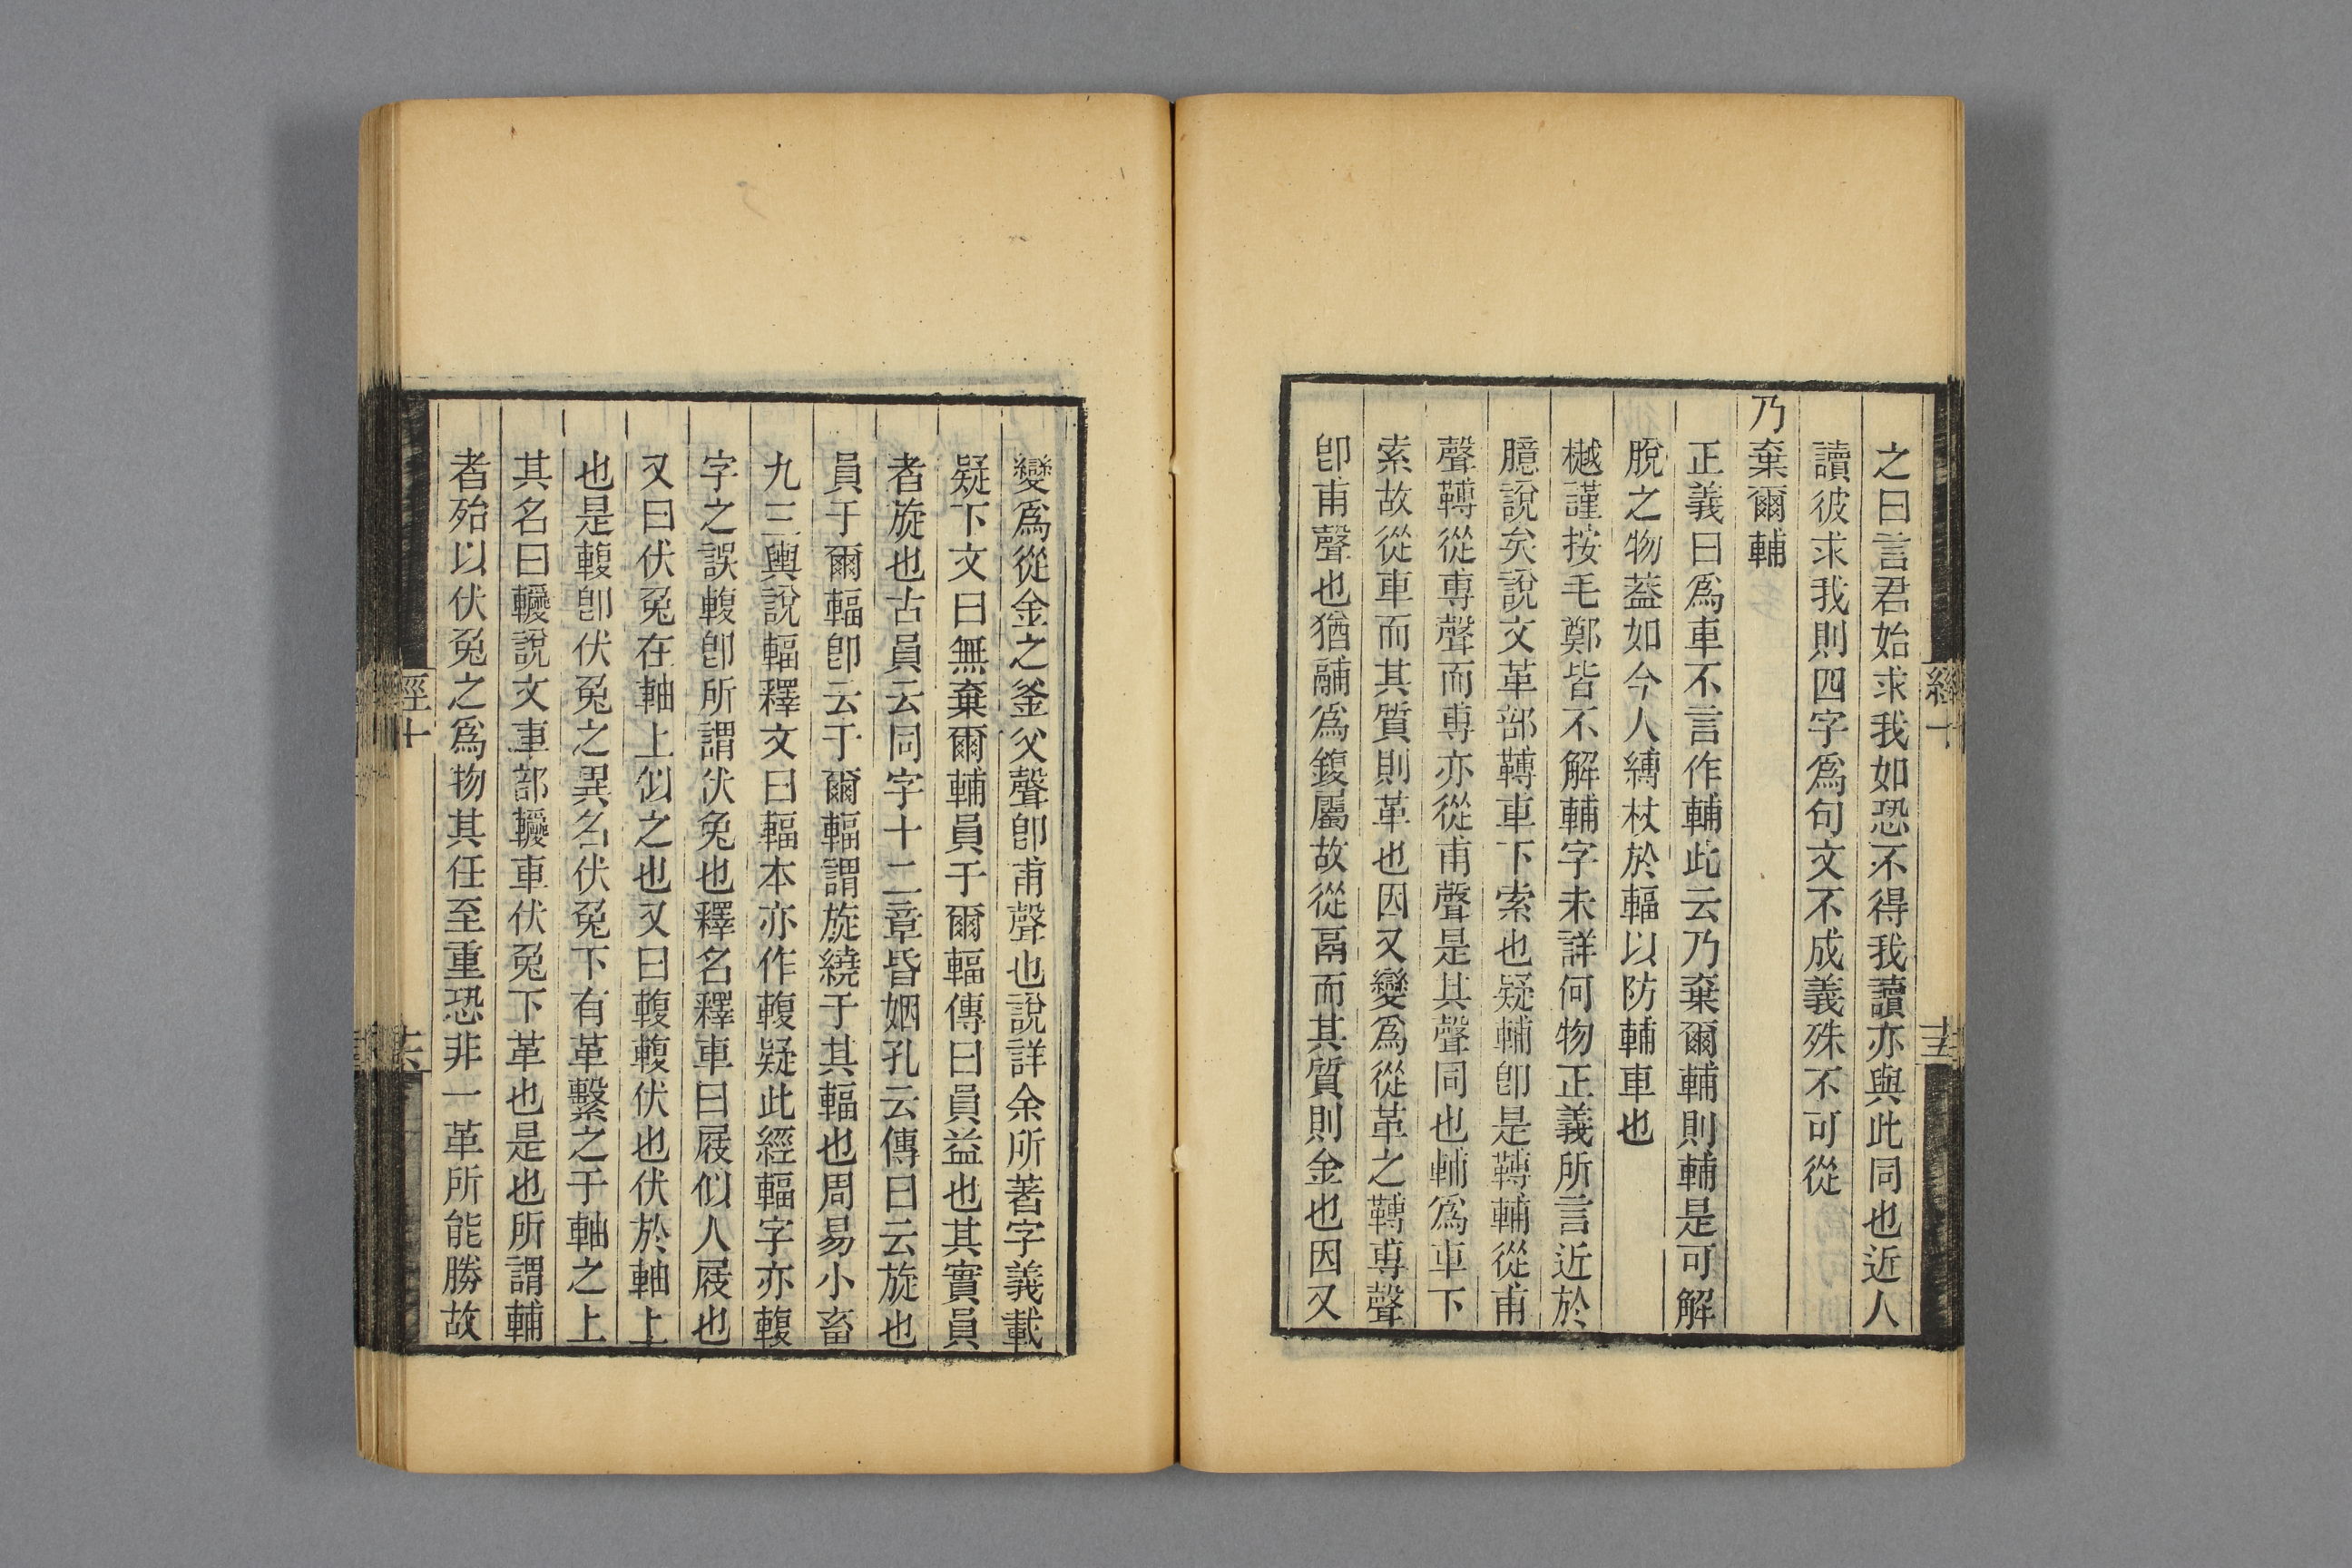 之曰言君始求我如恐不得我讀亦與此同也近人
讀彼求我則四字爲句文不成義殊不可從
乃棄爾輔
正義曰爲車不言作輔此云乃棄爾輔則輔是可解
脫之物葢如今人縛杖於輻以防輔車也
樾謹按毛鄭皆不解輔字未詳何物正義所言近於
臆說矣說文革部䪙車下索也疑輔卽是䪙輔從甫
聲䪙從尃聲而尃亦從甫聲是其聲同也輔爲車下
索故從車而其質則革也因又變爲從革之䪙尃聲
卽甫聲也猶鬴爲鍑屬故從鬲而其質則金也因又
變爲從金之釜父聲卽甫聲也說詳余所著字義載
疑下文曰無棄爾輔員于爾輻傳曰員益也其實員
者旋也古員云同字十二章昏姻孔云傳曰云旋也
員于爾輻卽云于爾輻謂旋繞于其輻也周易小畜
九三輿說輻釋文曰輻本亦作輹疑此經輻字亦輹
字之誤輹卽所謂伏兔也釋名釋車曰屐似人屐也
又曰伏兔在軸上似之也又曰輹輹伏也伏於軸上
也是輹卽伏兔之異名伏兔下有革繫之于軸之上
其名曰䡣說文車部䡣車伏兔下革也是也所謂輔
者殆以伏兔之爲物其任至重恐非一革所能勝故
經十
十六